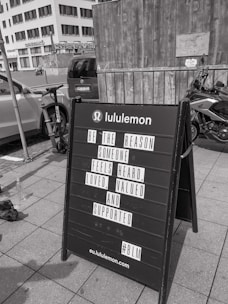 lululemon
BE THE REASON
SOMEONE
FEELS HEARD
LOVED VALUED
AND
SUPPORTED
#BLM
eu.lululemon.com